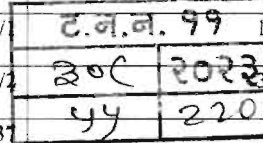 ट.न.न. ११
३०८ २०२३
५५ 220